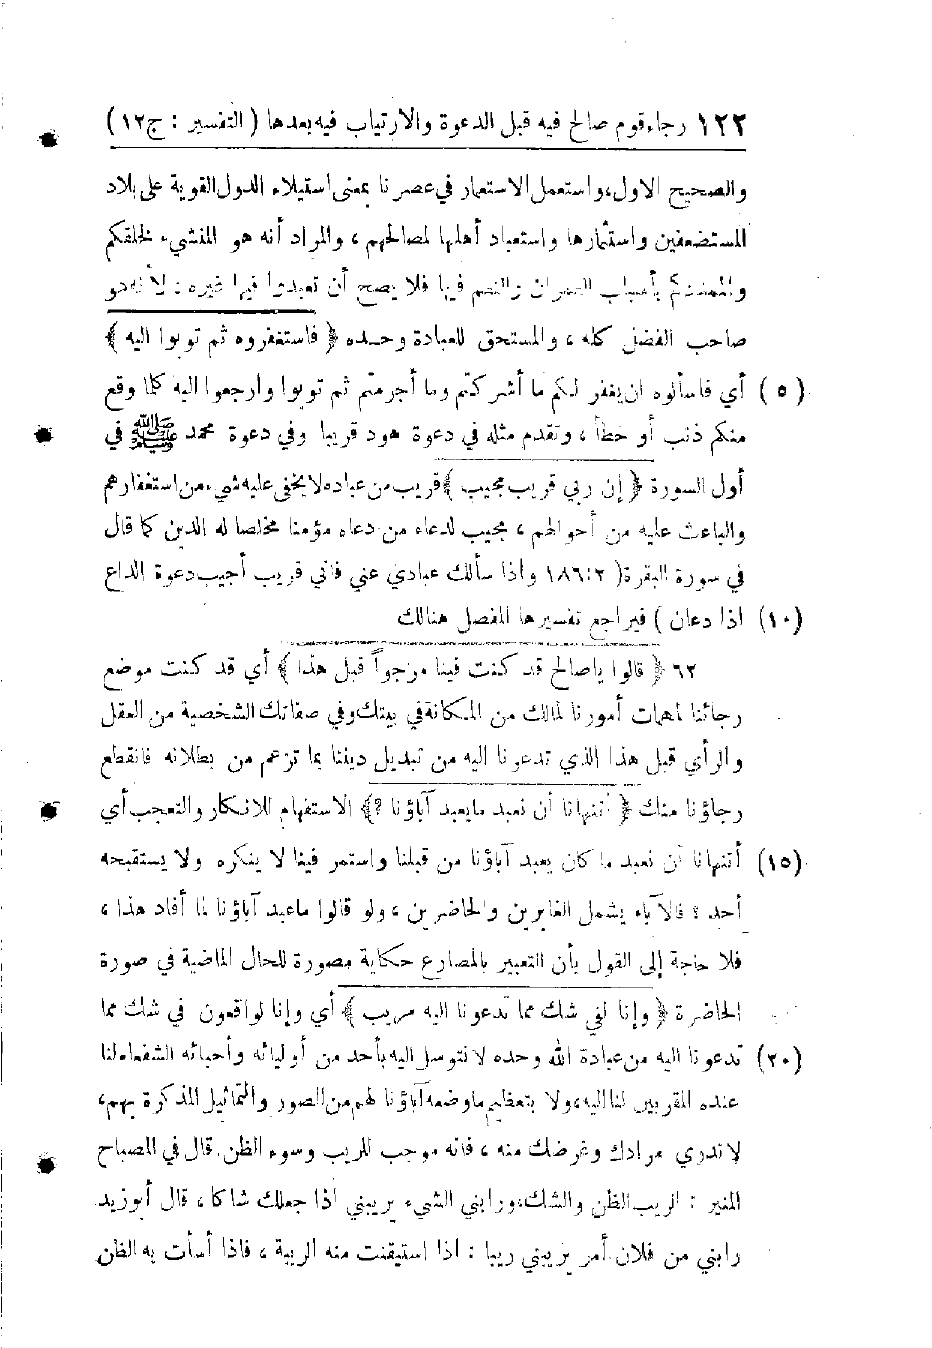 ١٢٢ رجاء قوم صالح فيه قبل الدعوة والارتياب فيه بعدها ( التفسير : ج١٢)
والصحيح الاول، واستعمل الاستعمار في عصرنا بمعنى استيلاء الدول القوية على بلاد
المستضعفين واستثمارها واستعباد أهلها لمصالحهم ، والمراد أنه هو المنشيء لخلقكم
والممدكم بأسباب العمران والنعم فيها فلا يصح أن تعبدوا فيها غيره : لأنه هو
صاحب الفضل كله ، والمستحق للعبادة وحده ﴿ فاستغفروه ثم توبوا اليه ﴾
(٥) أي فاسألوه ان يغفر لكم ما أشركتم وما أجرمتم ثم توبوا وارجعوا اليه كلما وقع
منكم ذنب أو خطأ ، وتقدم مثله في دعوة هود قريبا وفي دعوة محمد ﷺ في
أول السورة ﴿ إن ربي قريب مجيب ﴾ قريب من عباده لا يخفى عليه شيء من استغفارهم
والباعث عليه من أحوالهم ، مجيب لدعاء من دعاه مؤمنا مخلصا له الدين كما قال
في سورة البقرة ( ٢ : ١٨٦ واذا سألك عبادي عني فاني قريب أجيب دعوة الداع
(١٠) اذا دعان ) فيراجع تفسيرها المفصل هنالك
٦٢ ﴿ قالوا ياصالح قد كنت فينا مرجواً قبل هذا ﴾ أي قد كنت موضع
رجائنا لمهمات أمورنا لمالك من المكانة في بيتك وفي صفاتك الشخصية من العقل
والرأي قبل هذا الذي تدعونا اليه من تبديل ديننا بما تزعم من بطلانه فانقطع
رجاؤنا منك ﴿ أتنهانا أن نعبد مايعبد آباؤنا ؟﴾ الاستفهام للانكار والتعجب أي
(١٥) أتنهانا أن نعبد ما كان يعبد آباؤنا من قبلنا واستمر فينا لا ينكره ولا يستقبحه
أحد ؟ فالآباء يشمل الغابرين والحاضرين ، ولو قالوا ماعبد آباؤنا لما أفاد هذا ،
فلا حاجة إلى القول بأن التعبير بالمضارع حكاية مصورة للحال الماضية في صورة
الحاضرة ﴿ وإنا لفي شك مما تدعونا اليه مريب ﴾ أي وإنا لواقعون في شك مما
(٢٠) تدعونا اليه من عبادة الله وحده لا نتوسل اليه بأحد من أوليائه وأحبائه الشفعاء لنا
عنده المقربين لنا اليه، ولا بتعظيم ما وضعه آباؤنا لهم من الصور والتماثيل المذكرة بهم،
لا ندري مرادك وغرضك منه ، فانه موجب للريب وسوء الظن. قال في المصباح
المنير : الريب الظن والشك، ورابني الشيء يريبني اذا جعلك شاكا ، قال أبوزيد
رابني من فلان أمر يريبني ريبا : اذا استيقنت منه الريبة ، فاذا أسأت به الظن